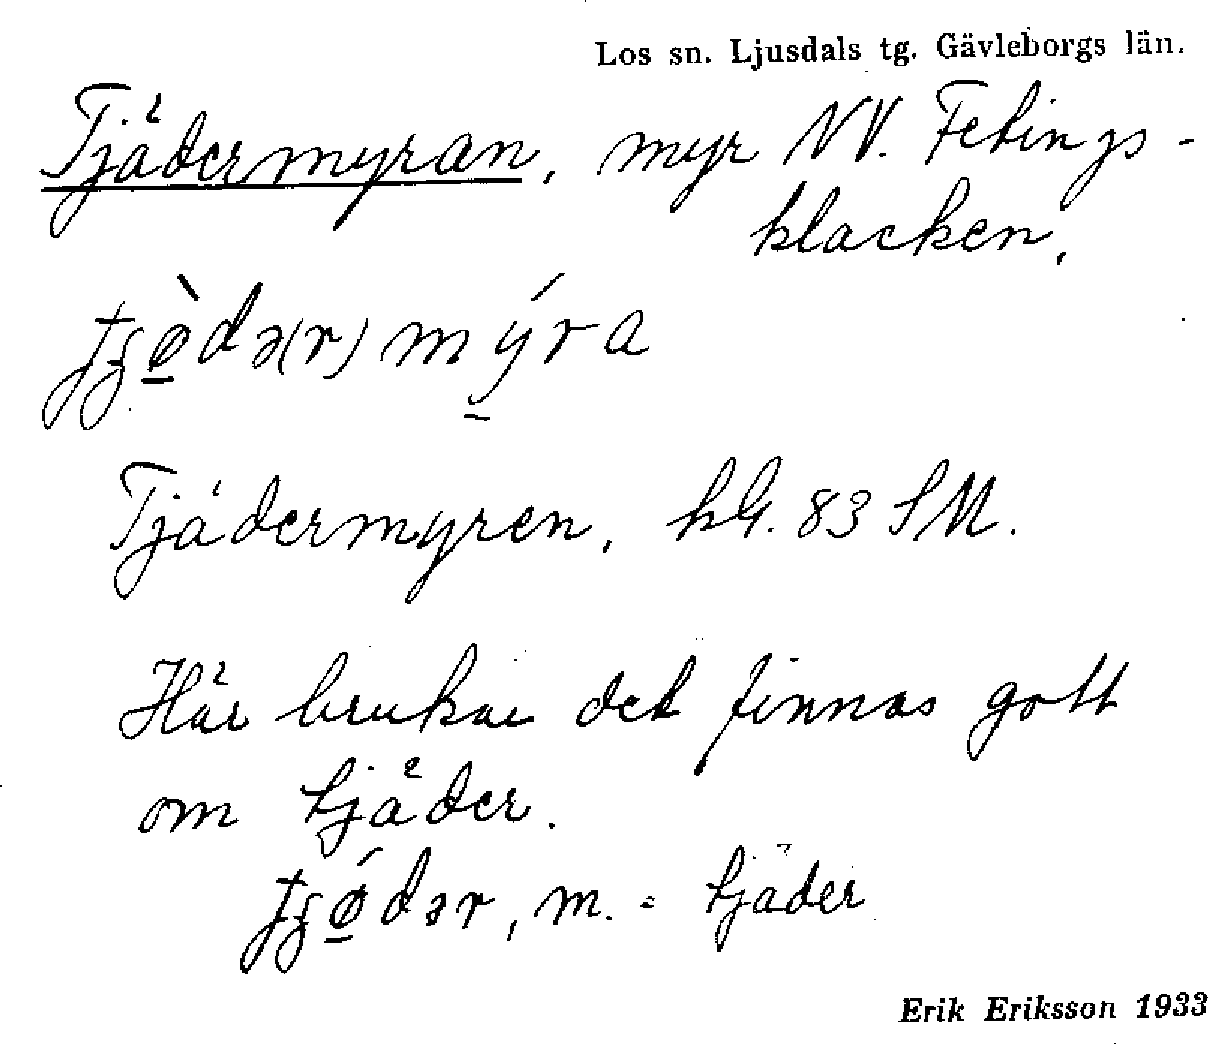 Los sn. Ljusdals tg. Gävleborgs län.
Tjädermyran, myr NV. Febings-
klacken.
Tjädermyren, hG. 83 SM.
Här brukar det finnas gott
om tjäder.
m. = tjäder
Erik Eriksson 1933